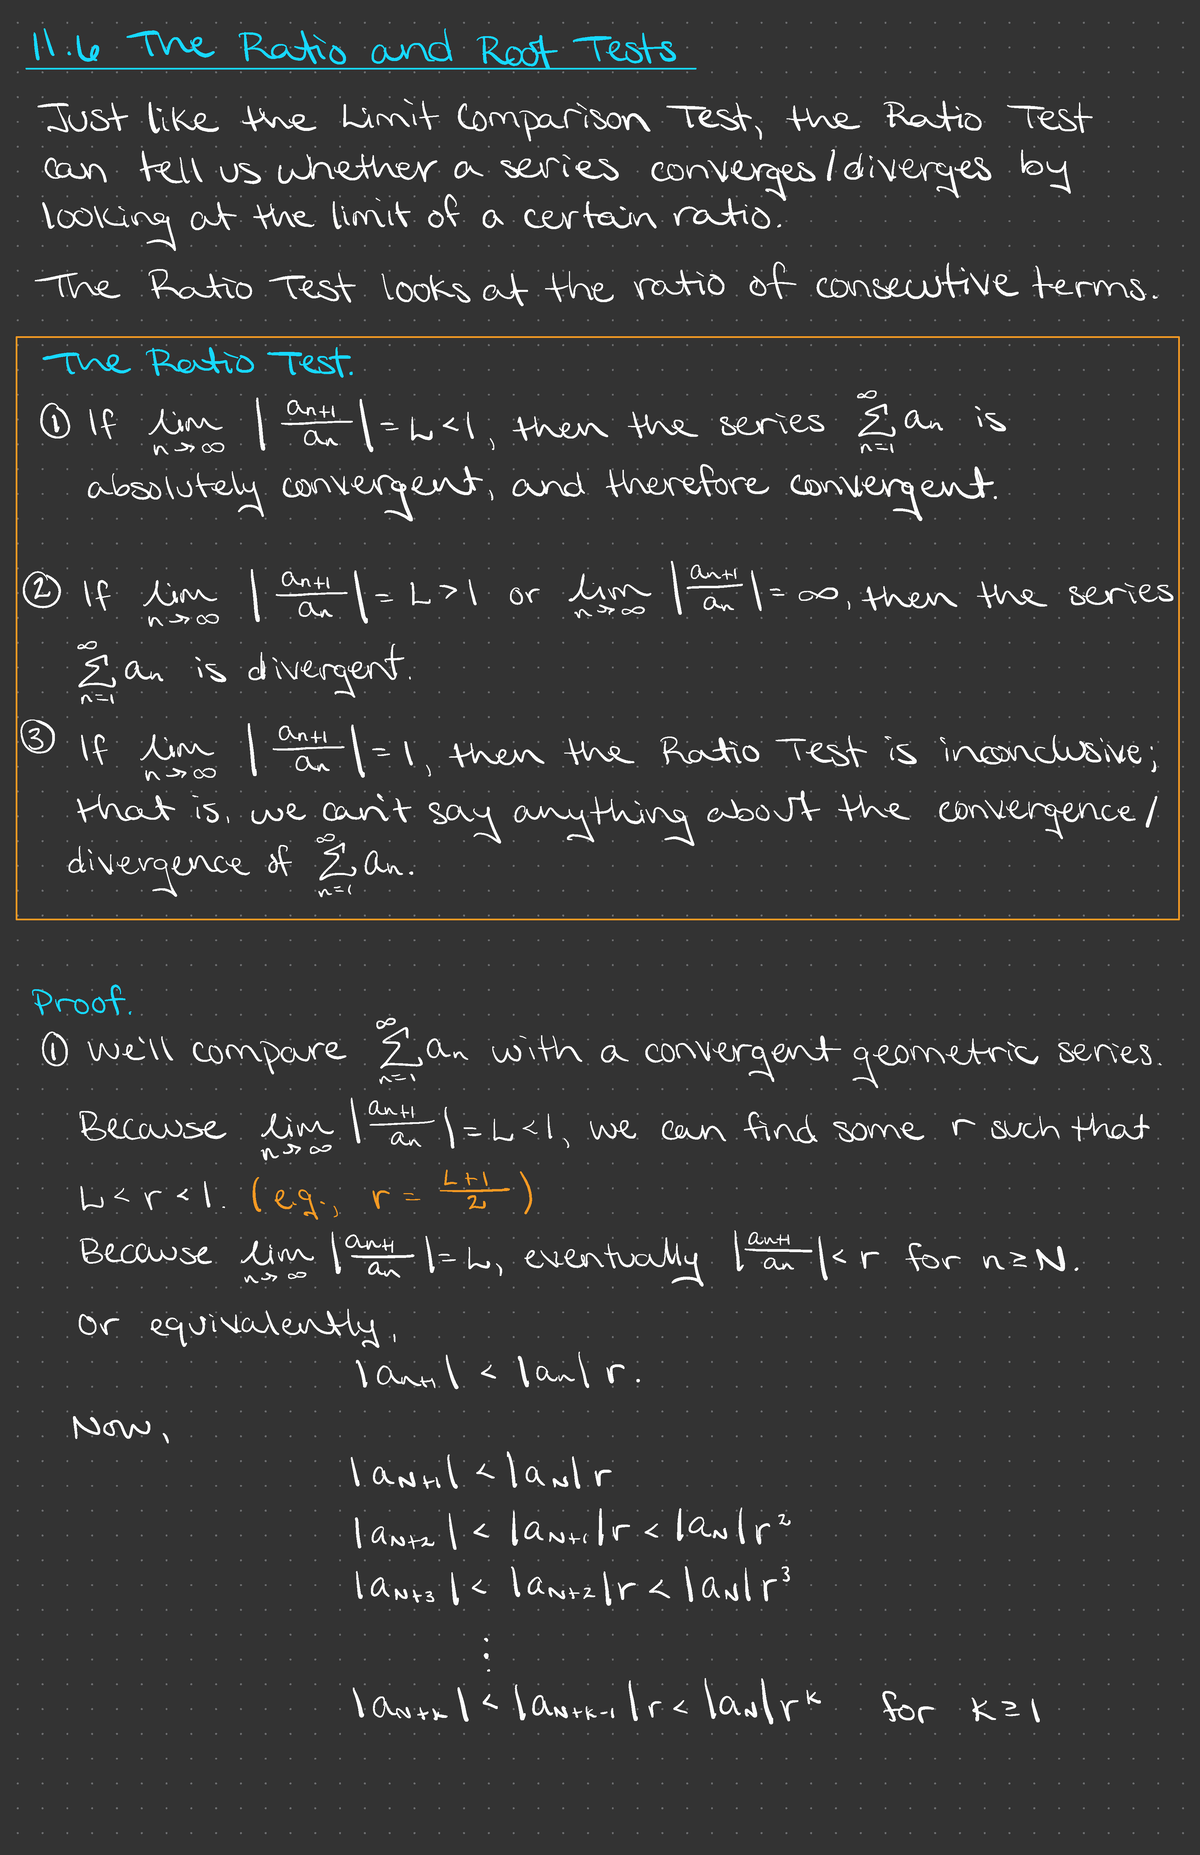 11.6 The Ratio and Root Tests
Just like the Limit Comparison Test, the Ratio Test
can tell us whether a series converges/diverges by
looking at the limit of a certain ratio.
The Ratio Test looks at the ratio of consecutive terms.
The Ratio Test.
① If lim_{n→∞} |a_{n+1}/a_n| = L < 1, then the series ∑_{n=1}^{∞} a_n is
absolutely convergent, and therefore convergent.
② If lim_{n→∞} |a_{n+1}/a_n| = L > 1 or lim_{n→∞} |a_{n+1}/a_n| = ∞, then the series
∑_{n=1}^{∞} a_n is divergent.
③ If lim_{n→∞} |a_{n+1}/a_n| = 1, then the Ratio Test is inconclusive;
that is, we can't say anything about the convergence/
divergence of ∑_{n=1}^{∞} a_n.
Proof.
① We'll compare ∑_{n=1}^{∞} a_n with a convergent geometric series.
Because lim_{n→∞} |a_{n+1}/a_n| = L < 1, we can find some r such that
L < r < 1. (e.g., r = (L+1)/2)
Because lim_{n→∞} |a_{n+1}/a_n| = L, eventually |a_{n+1}/a_n| < r for n ≥ N.
or equivalently,
|a_{n+1}| < |a_n| r.
Now,
|a_{N+1}| < |a_N| r
|a_{N+2}| < |a_{N+1}| r < |a_N| r²
|a_{N+3}| < |a_{N+2}| r < |a_N| r³
⋮
|a_{N+k}| < |a_{N+k-1}| r < |a_N| r^k for k ≥ 1